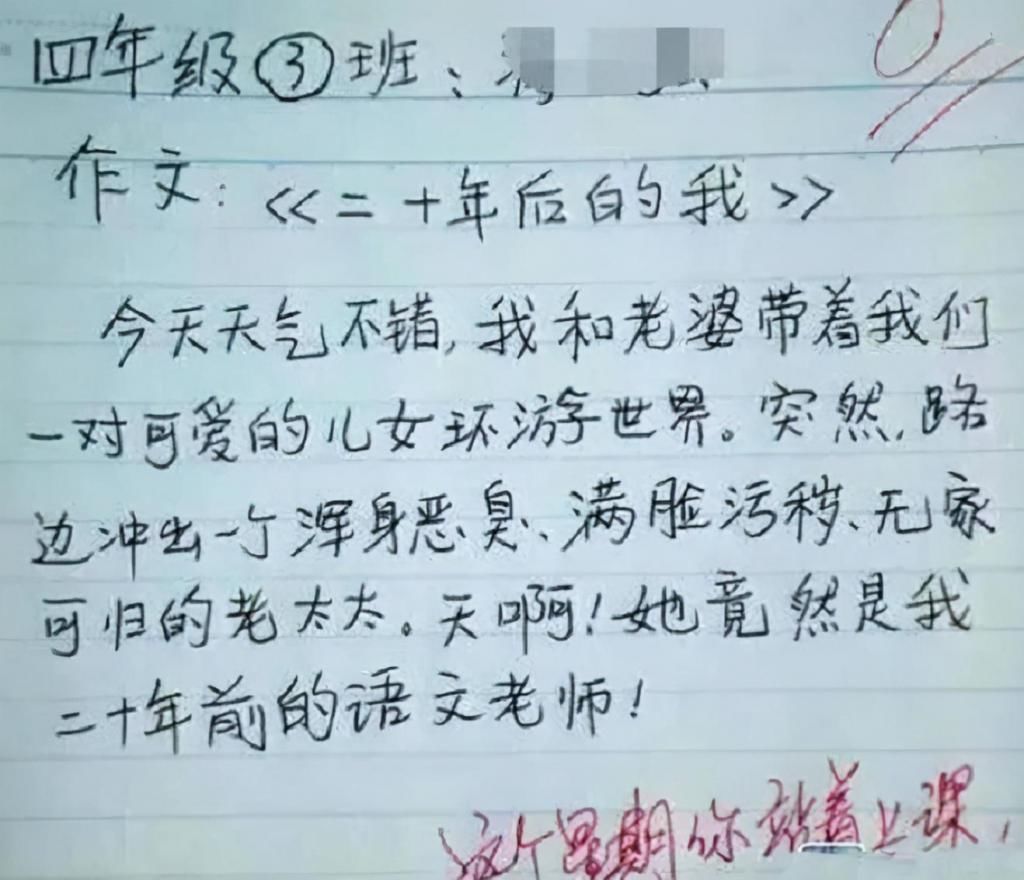 四年级③班：
作文：《二十年后的我》
今天天气不错，我和老婆带着我们
一对可爱的儿女环游世界。突然，路
边冲出一个浑身恶臭、满脸污秽、无家
可归的老太太。天啊！她竟然是我
二十年前的语文老师！
这个星期你站着上课，
0